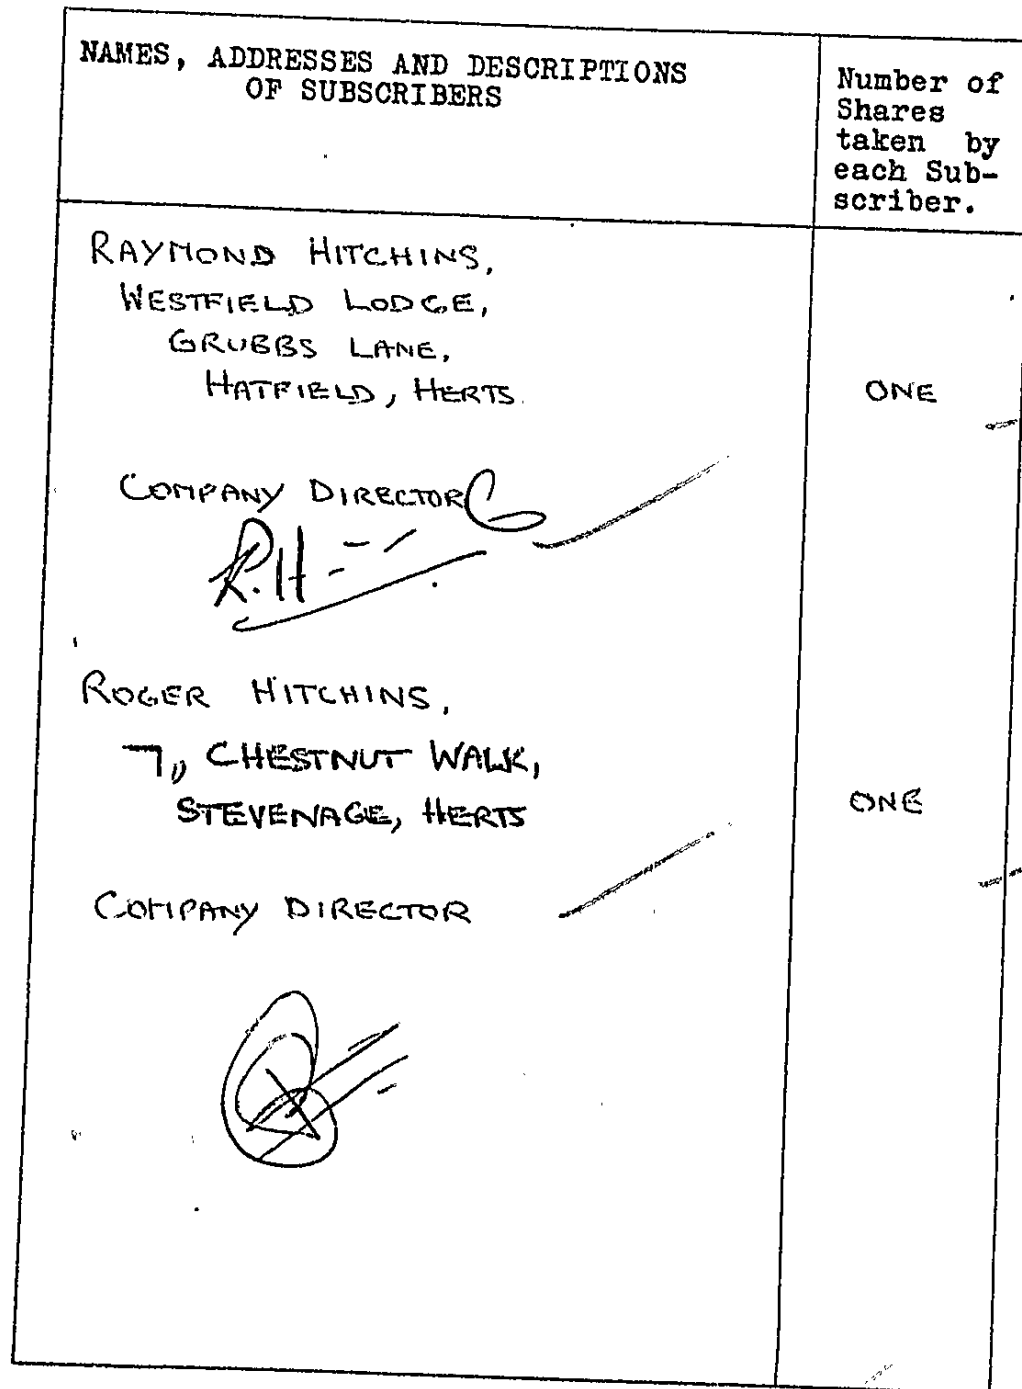 NAMES, ADDRESSES AND DESCRIPTIONS
OF SUBSCRIBERS
Number of
Shares
taken by
each Sub-
scriber.
RAYMOND HITCHINS,
WESTFIELD LODGE,
GRUBBS LANE,
HATFIELD, HERTS.
ONE
COMPANY DIRECTOR
R.H
ROGER HITCHINS,
7, CHESTNUT WALK,
STEVENAGE, HERTS
ONE
COMPANY DIRECTOR